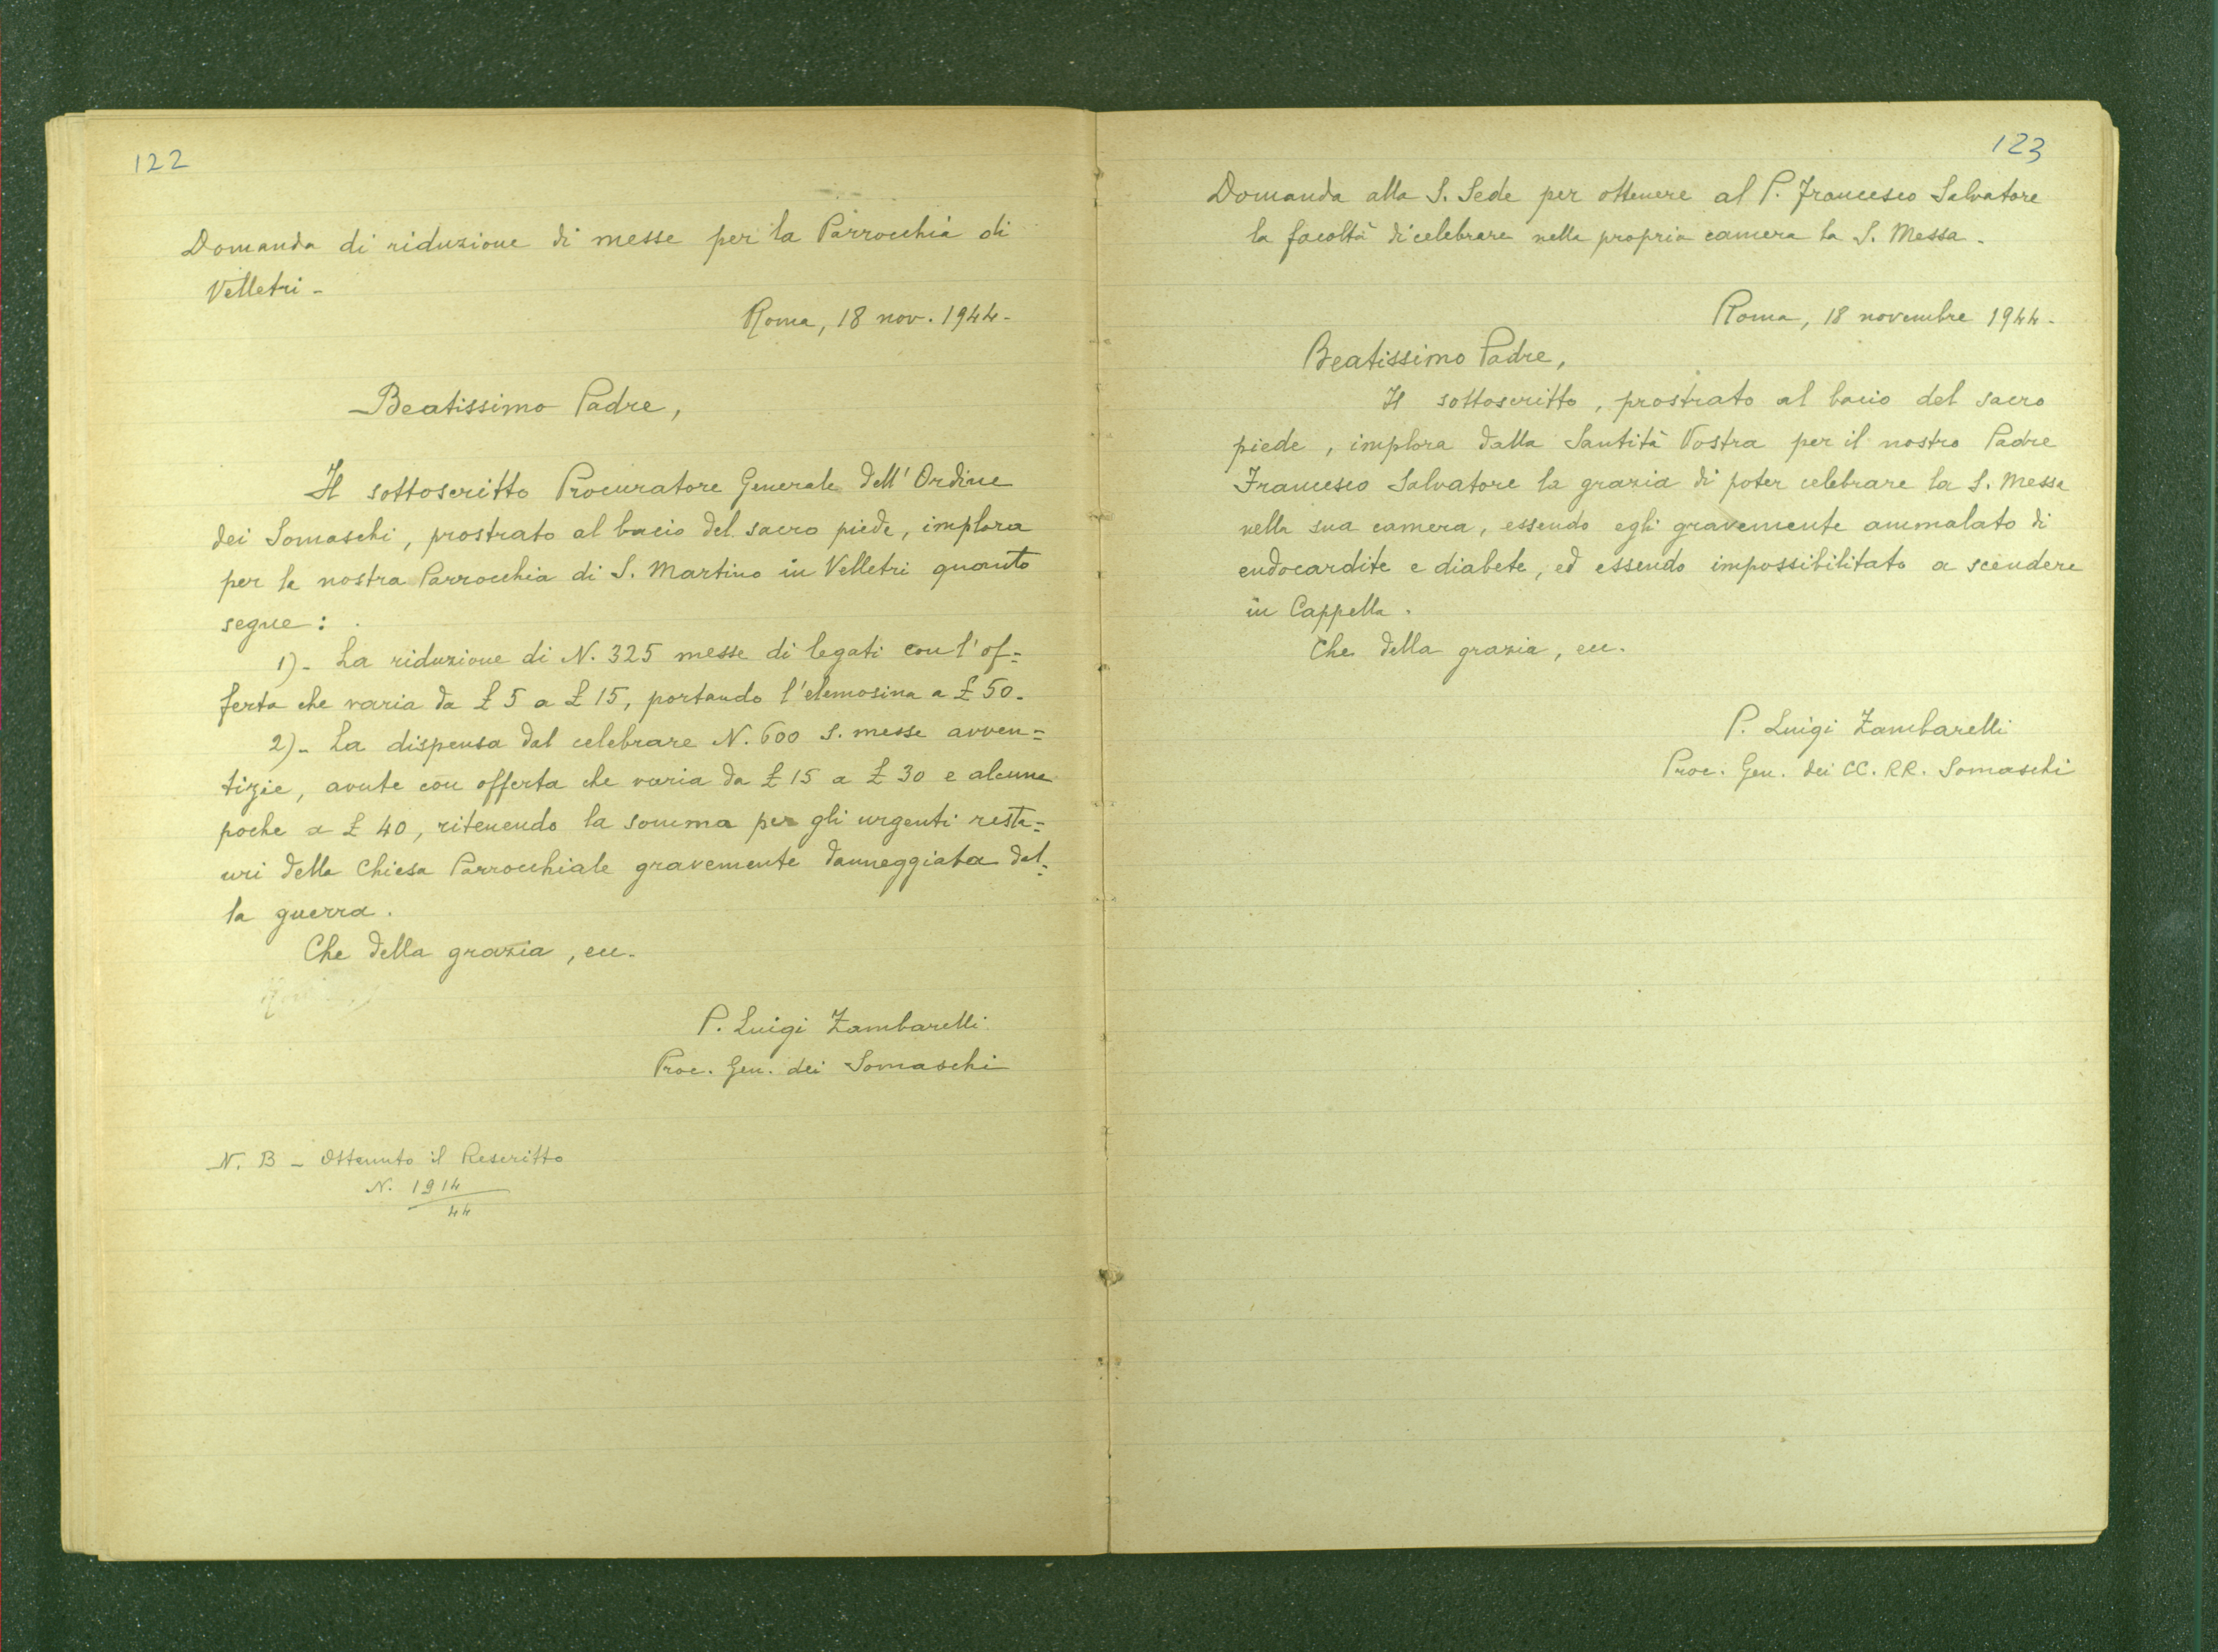 122
Domanda di riduzione di messe per la Parrocchia di
Velletri -
Roma, 18 nov. 1944 -
Beatissimo Padre,
Il sottoscritto Procuratore Generale dell'Ordine
dei Somaschi, prostrato al bacio del sacro piede, implora
per la nostra Parrocchia di S. Martino in Velletri quanto
segue:
1) - La riduzione di N. 325 messe di legati con l'of=
ferta che varia da £ 5 a £ 15, portando l'elemosina a £ 50 -
2) - La dispensa dal celebrare N. 600 S. messe avven=
tizie, avute con offerta che varia da £ 15 a £ 30 e alcune
poche a £ 40, ritenendo la somma per gli urgenti resta=
uri della Chiesa Parrocchiale gravemente danneggiata dal=
la guerra.
Che della grazia, ecc.
P. Luigi Zambarelli
Proc. Gen. dei Somaschi
N. B - Ottenuto il Rescritto
N. 1914
44
123
Domanda alla S. Sede per ottenere al P. Francesco Salvatore
la facoltà di celebrare nella propria camera la S. Messa -
Roma, 18 novembre 1944 -
Beatissimo Padre,
Il sottoscritto, prostrato al bacio del sacro
piede, implora dalla Santità Vostra per il nostro Padre
Francesco Salvatore la grazia di poter celebrare la S. Messa
nella sua camera, essendo egli gravemente ammalato di
endocardite e diabete, ed essendo impossibilitato a scendere
in Cappella.
Che della grazia, ecc.
P. Luigi Zambarelli
Proc. Gen. dei CC. RR. Somaschi